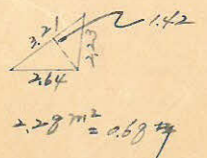 3.21
1.42
2.64
2.28m²
=0.68坪